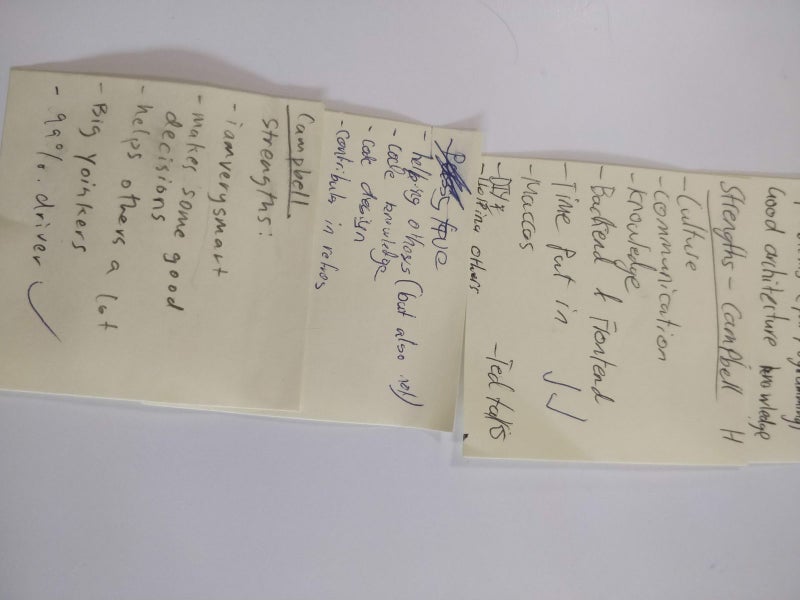 Good architecture knowledge
Strengths - Campbell H
- Culture
- communication
- knowledge
- Backend & Frontend
- Time put in
- Maccas
- helping others
- Ted talks
Positive
- helping others (but also not)
- code knowledge
- code design
- contribute in retros
Campbell
strengths:
- iamverysmart
- makes some good
decisions
- helps others a lot
- Big yoinkers
- 99% driver